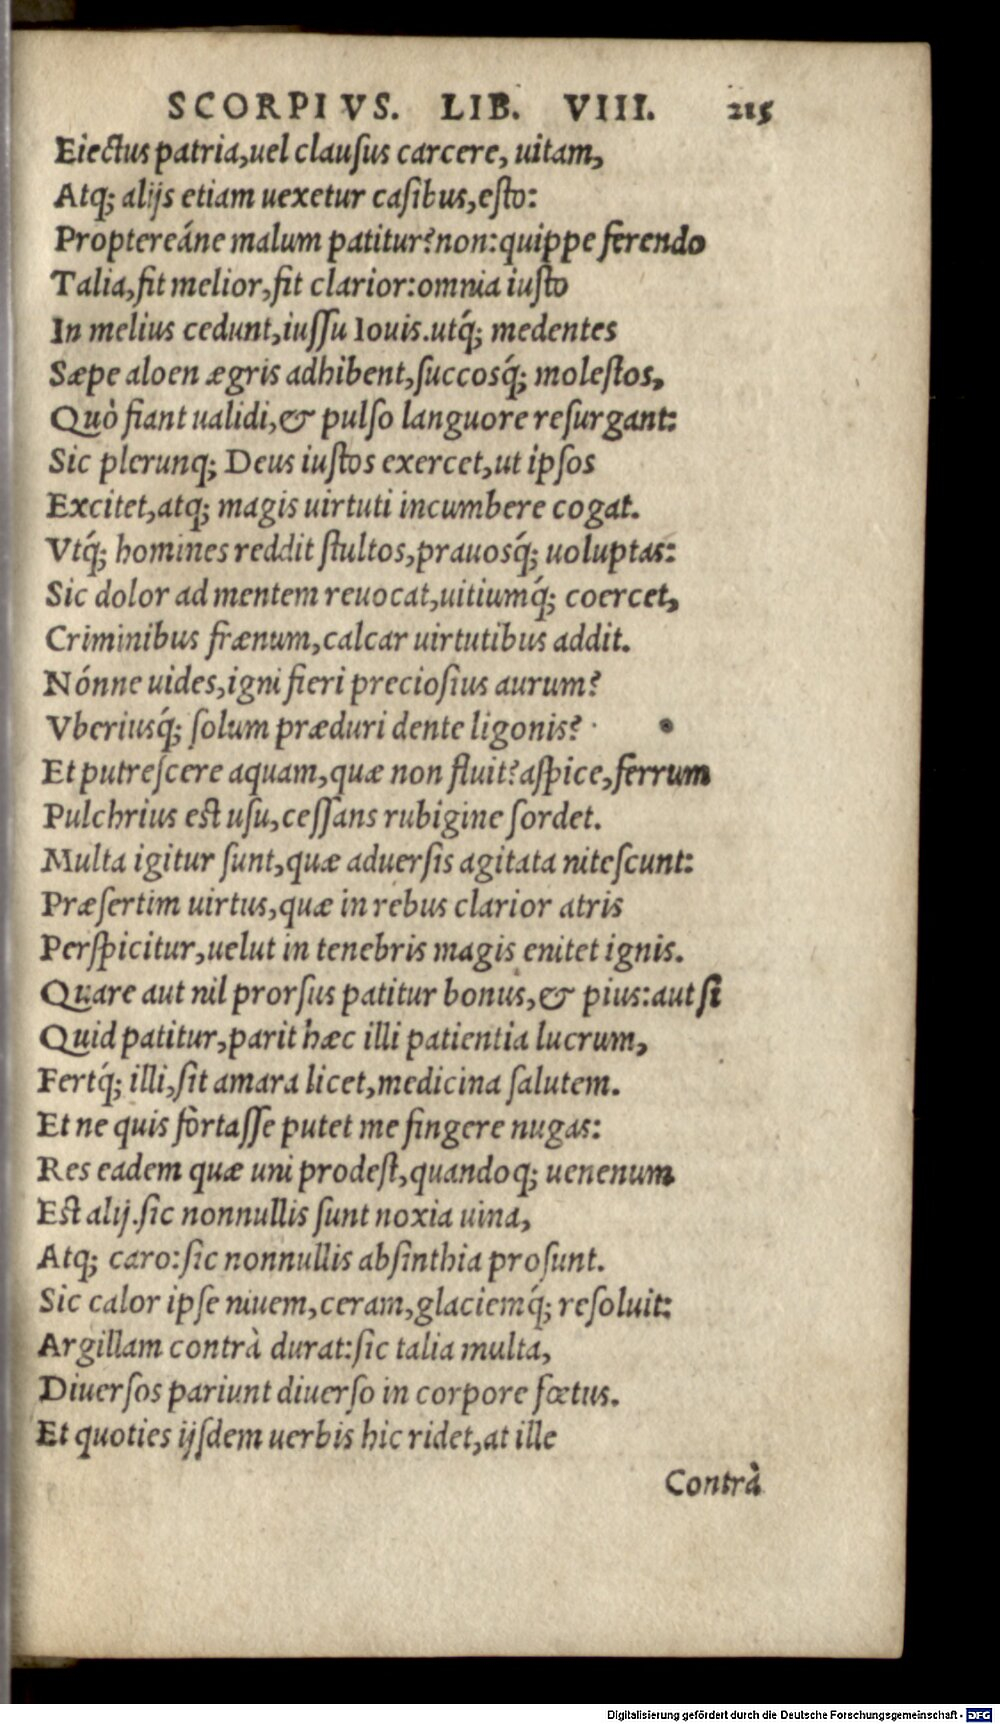 SCORPIVS. LIB. VIII. 215
Eiectus patria,uel clauſus carcere, uitam,
Atq; alijs etiam uexetur caſibus,eſto:
Proptereáne malum patitur?non:quippe ferendo
Talia,fit melior,fit clarior:omnia iuſto
In melius cedunt,iuſſu Iouis.utq́; medentes
Sæpe aloen ægris adhibent,ſuccosq́; moleſtos,
Quò fiant ualidi,& pulſo languore reſurgant:
Sic plerunq; Deus iuſtos exercet,ut ipſos
Excitet,atq; magis uirtuti incumbere cogat.
Vtq́; homines reddit ſtultos,prauosq́; uoluptas:
Sic dolor ad mentem reuocat,uitiumq́; coercet,
Criminibus frænum,calcar uirtutibus addit.
Nónne uides,igni fieri precioſius aurum?
Vberiusq́; ſolum præduri dente ligonis?
Et putreſcere aquam,quæ non fluit?aſpice,ferrum
Pulchrius eſt uſu,ceſſans rubigine ſordet.
Multa igitur ſunt,quæ aduerſis agitata niteſcunt:
Præſertim uirtus,quæ in rebus clarior atris
Perſpicitur,uelut in tenebris magis enitet ignis.
Quare aut nil prorſus patitur bonus,& pius:aut ſi
Quid patitur,parit hæc illi patientia lucrum,
Fertq́; illi,ſit amara licet,medicina ſalutem.
Et ne quis fortaſſe putet me fingere nugas:
Res eadem quæ uni prodeſt,quandoq; uenenum
Eſt alij.ſic nonnullis ſunt noxia uina,
Atq; caro:ſic nonnullis abſinthia proſunt.
Sic calor ipſe niuem,ceram,glaciemq́; reſoluit:
Argillam contrà durat:ſic talia multa,
Diuerſos pariunt diuerſo in corpore fœtus.
Et quoties ijſdem uerbis hic ridet,at ille
Contrà
Digitalisierung gefördert durch die Deutsche Forschungsgemeinschaft - DFG